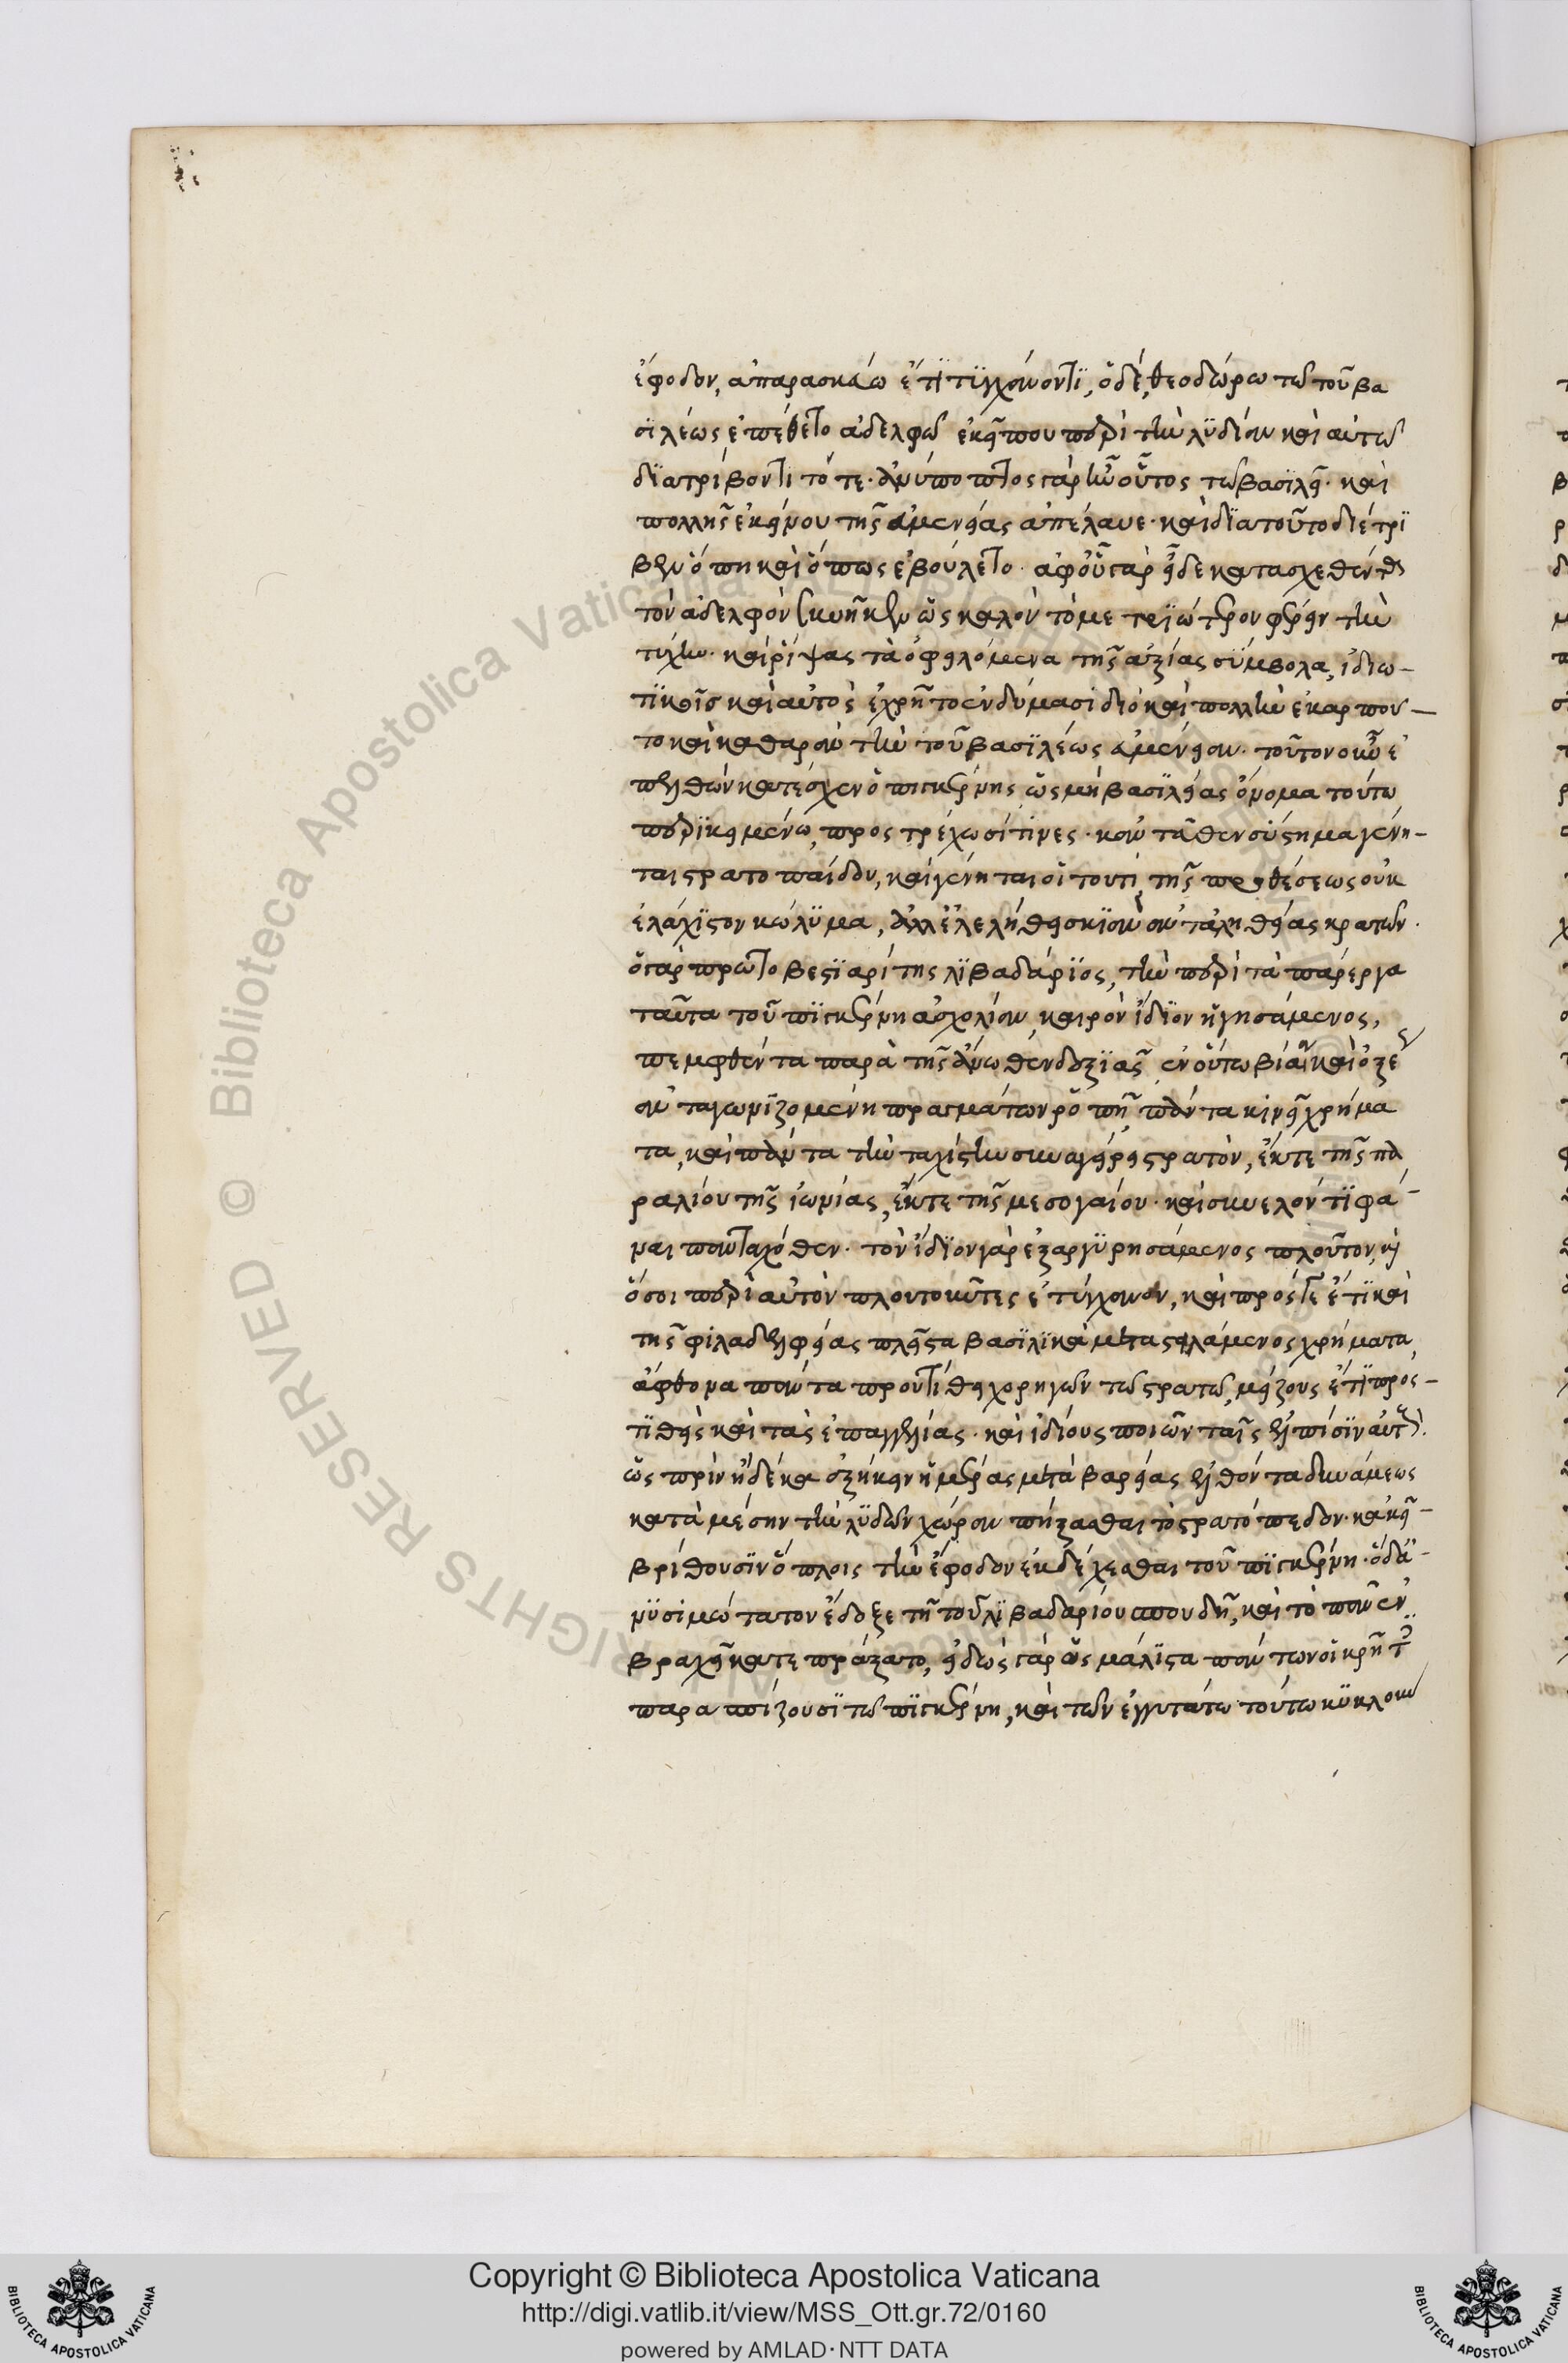 ἔφοδον, ἀπαρασκεύω ἔτι τυγχάνοντι, ὁ δέ, θεοδώρω τῶ τοῦ βα
σϊλέως ἐπέθετο ἀδελφῶ ἐκεῖ που περὶ τὴν λϋδίαν καὶ αὐτῶ
δϊατρίβοντι τότε. ἀνύποπτος γὰρ ἦν οὗτος τῶ βασϊλεῖ. καὶ
πολλῆς ἐκείνου τῆς εὐμενείας ἀπέλαυε. καὶ δϊατοῦτο διέτρϊ
βεν ὅπη καὶ ὅπως ἐβούλετο. ἀφοῦ γὰρ εἶδε κατασχεθέντα
τὸν ἀδελφὸν ὡς καλὸν τὸ μετρϊώτερον φέρειν τὴν
τύχην. καὶ ῥίψας τὰ ὀφειλόμενα τῆς ἀξίας σύμβολα, ἰδιω-
τϊκοῖσ καὶ αὐτὸς ἐχρῆτο ἐνδύμασι διὸ καὶ πολλὴν ἐκαρποῦ-
το καὶ καθαρὰν τὴν τοῦ βασϊλέως εὐμένειαν. τοῦτον οὖν ἐ
πελθὼν κατέσχεν ὁ πιγκέρνης ὡς μὴ βασϊλείας ὄνομα τούτω
περϊκειμένω, προστρέχωσί τινες. κἀνταῦθεν σύστημα γένη-
ται στρατοπαίδου, καὶ γένηταί οἱ τουτὶ τῆς προθέσεως οὐκ
ἐλάχϊστον κώλϋμα, ἀλλ ἐλελήθει σκϊὰν ἀντ ἀληθείας κρατῶν.
ὁ γὰρ πρωτοβεστϊαρίτης λϊβαδάρϊος, τὴν περὶ τὰ πάρεργα
ταῦτα τοῦ πϊγκέρνη ἀσχολίαν, καιρὸν ἴδϊον ἡγησάμενος,
πεμφθέντα παρὰ τῆς ἄνωθεν δεξϊᾶς ἐν οὕτω βίαια καὶ ὀξεῖ
ἀνταγωνϊζομένη πραγμάτων ῥοπῆ, πάντα κινεῖ χρήμα
τα, καὶ πάντα τὴν ταχίστην συναγείρει στρατὸν, ἔκ τε τῆς πα
ραλίου τῆς ἰωνίας, ἔκ τε τῆς μεσογαίου. καὶ συνελόντϊ φά-
ναι πανταχόθεν. τὸν ἴδϊον γὰρ ἐξαργϋρησάμενος πλοῦτον, καὶ
ὅσοι περὶ αὐτὸν πλουτοῦντες ἐτύγχανον, καὶ πρός γε ἔτϊ καὶ
τῆς φιλαδελφείας πλεῖστα βασϊλϊκὰ μεταστειλάμενος χρήματα,
ἄφθονα πάντα προὐτίθει χορηγῶν τῶ στρατῶ, μείζους ἔτϊ προς-
τϊθεὶς καὶ τὰς ἐπαγγελίας. καὶ ἰδίους ποιῶν ταῖς ἐλπίσϊν αὐτούς.
ὡς πρὶν ἢ δέκα ἐξήκειν ἡμέρας μετὰ βαρείας ἐλθόντα δυνάμεως
κατὰ μέσην τὴν λϋδῶν χώραν πήξασθαι τὸ στρατόπεδον. κἀκεῖ
βρίθουσϊν ὅπλοις τὴν ἔφοδον ἐκδέχεσθαι τοῦ πϊγκέρνη. ὃ δὲ
νϋσιμώτατον ἔδοξε τῆ τοῦ λϊβαδαρίου σπουδῆ, καὶ τὸ πᾶν ἐν
βραχεῖ κατεπράξατο, εἰδὼς γὰρ ὡς μάλϊστα πάντων οἱ κρῆτες
παρασπίζουσϊ τῶ πϊγκέρνη, καὶ τῶν ἐγγυτάτω τούτω κϋκλοῦν